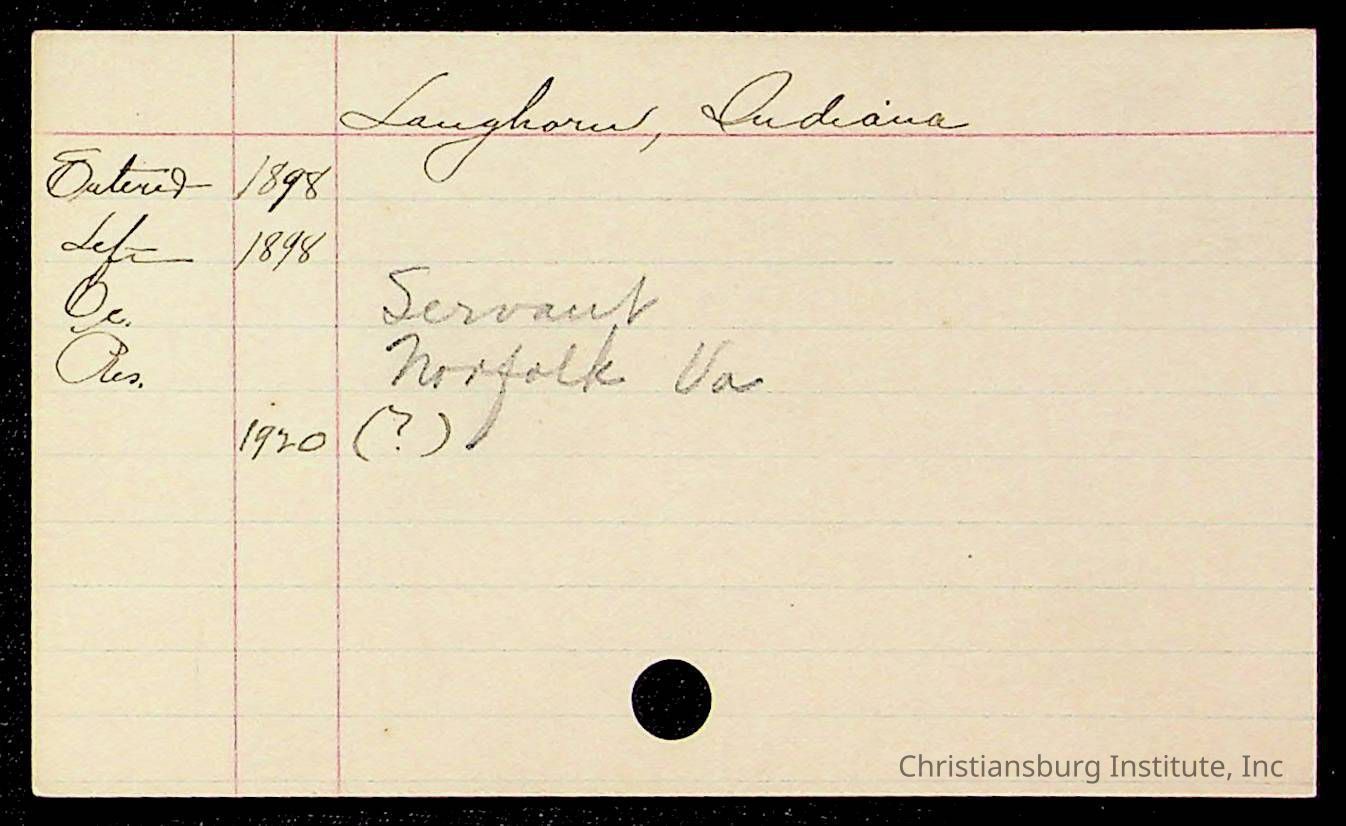 Langhorn, Indiana
Entered 1898
Left 1898
Oc. Servant
Res. Norfolk Va
1920 (?)
Christiansburg Institute, Inc